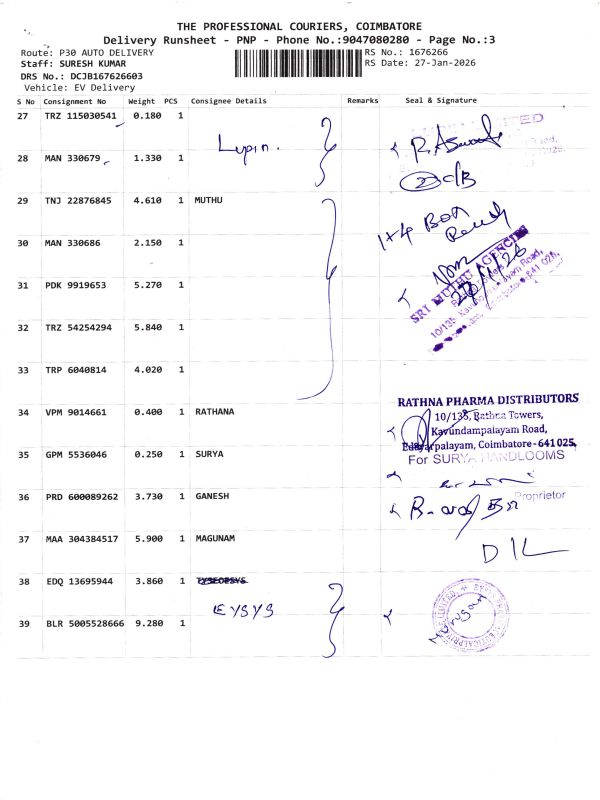 THE PROFESSIONAL COURIERS, COIMBATORE
Delivery Runsheet - PNP - Phone No.:9047080280 - Page No.:3
Route: P30 AUTO DELIVERY
RS No.: 1676266
Staff: SURESH KUMAR
RS Date: 27-Jan-2026
DRS No.: DCJB167626603
Vehicle: EV Delivery
S No Consignment No Weight PCS Consignee Details Remarks Seal & Signature
27 TRZ 115030541 0.180 1
Lupin.
28 MAN 330679 1.330 1
29 TNJ 22876845 4.610 1 MUTHU
1+4 Box
30 MAN 330686 2.150 1
SRI MUTHU AGENCIES
31 PDK 9919653 5.270 1
32 TRZ 54254294 5.840 1
33 TRP 6040814 4.020 1
34 VPM 9014661 0.400 1 RATHANA
RATHNA PHARMA DISTRIBUTORS
10/135, Rathna Towers,
Kavundampalayam Road,
Edayarpalayam, Coimbatore-641025.
35 GPM 5536046 0.250 1 SURYA
For SURYA HANDLOOMS
Proprietor
36 PRD 600089262 3.730 1 GANESH
37 MAA 304384517 5.900 1 MAGUNAM
38 EDQ 13695944 3.860 1
EYSYS
39 BLR 5005528666 9.280 1
Murugan